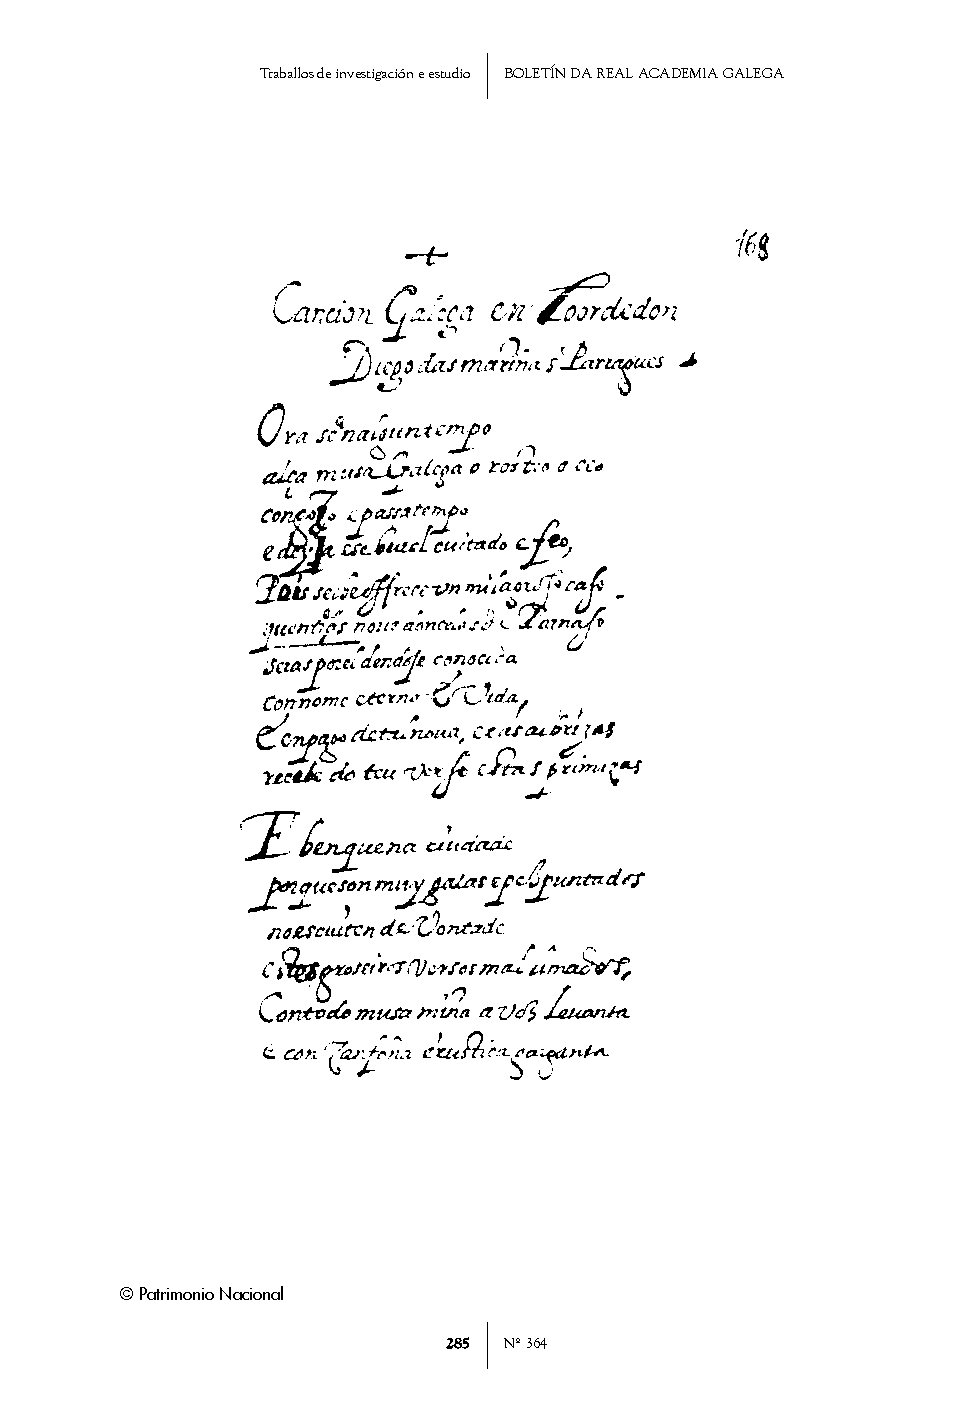 Traballos de investigación e estudio
BOLETÍN DA REAL ACADEMIA GALEGA
168
Cancion Galega en Loor de don
Diego das mariñas Parragues
Ora se en algun tempo
alça musa Galega o rostro
con gozo e passatempo
e ese buel cuitado e feo,
Pois se che offrece un milagroso caso
Parnaso
seras por el dende oje conocida
con nome eterno Vida,
En pago de tu noua,
recebe do teu verso estas primizas
E ben que na ciudade
porque son muy galas e pelipuntados
no escuiten de Vontade
estes groseiros Versos mal limados,
Con todo musa miña a voz leuanta
e con Zanfoña e rustica garganta
© Patrimonio Nacional
285
Nº 364